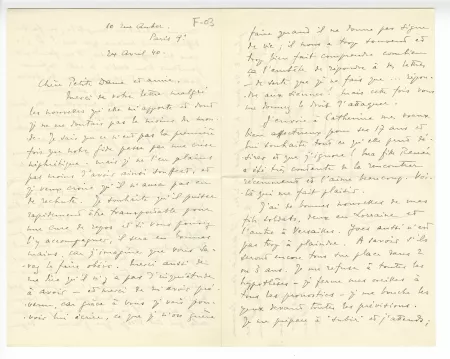 10 rue
Paris 7e
24 Avril 40.
F-03
Chère Petite Dame et amie.
Merci de votre lettre malgré
les nouvelles qu'elle m'apporte et dont
je ne me doutais pas le moins du mon-
de. Je sais que ce n'est pas la première
fois que notre passe par une crise
néphrétique - mais je ne l'en plains
pas moins
je veux croire qu'il n'aura pas eu
de rechute. Je souhaite qu'il puisse
rapidement être transportable pour
une cure de repos et si vous pouvez
l'y accompagner, il sera en bonnes
mains, car j'imagine que vous sa-
vez le faire obéir. Merci aussi de
me dire qu'il n'y a pas d'inquiétude
à avoir - et merci de m'avoir pré-
venu, car grâce à vous je vais pou-
voir lui écrire, ce que je n'ose guère
faire quand il ne donne pas signe
de vie; il nous a trop souvent et
trop bien fait comprendre combien
ça l'embête de répondre à des lettres
- de sorte que je ne fais que ... répon-
dre aux siennes! mais cette fois vous
me donnez le droit d'attaquer.
J'envoie à Catherine mes vœux
bien affectueux pour ses 17 ans et
lui souhaite tout ce qu'elle peut dé-
sirer et que j'ignore! Ma fille
a été très contente de la rencontrer
récemment et l'aime beaucoup. Voi-
là qui me fait plaisir.
J'ai de bonnes nouvelles de mes
fils soldats, deux en Lorraine et
l'autre à Versailles. Yves aussi n'est
pas trop à plaindre. A savoir s'ils
seront encore tous sur place dans 2
ou 3 ans. Je me refuse à toutes les
hypothèses - je ferme mes oreilles à
tous les pronostics - je me bouche les
yeux devant toutes les prévisions.
Je me prépare à "subir" et j'attends,